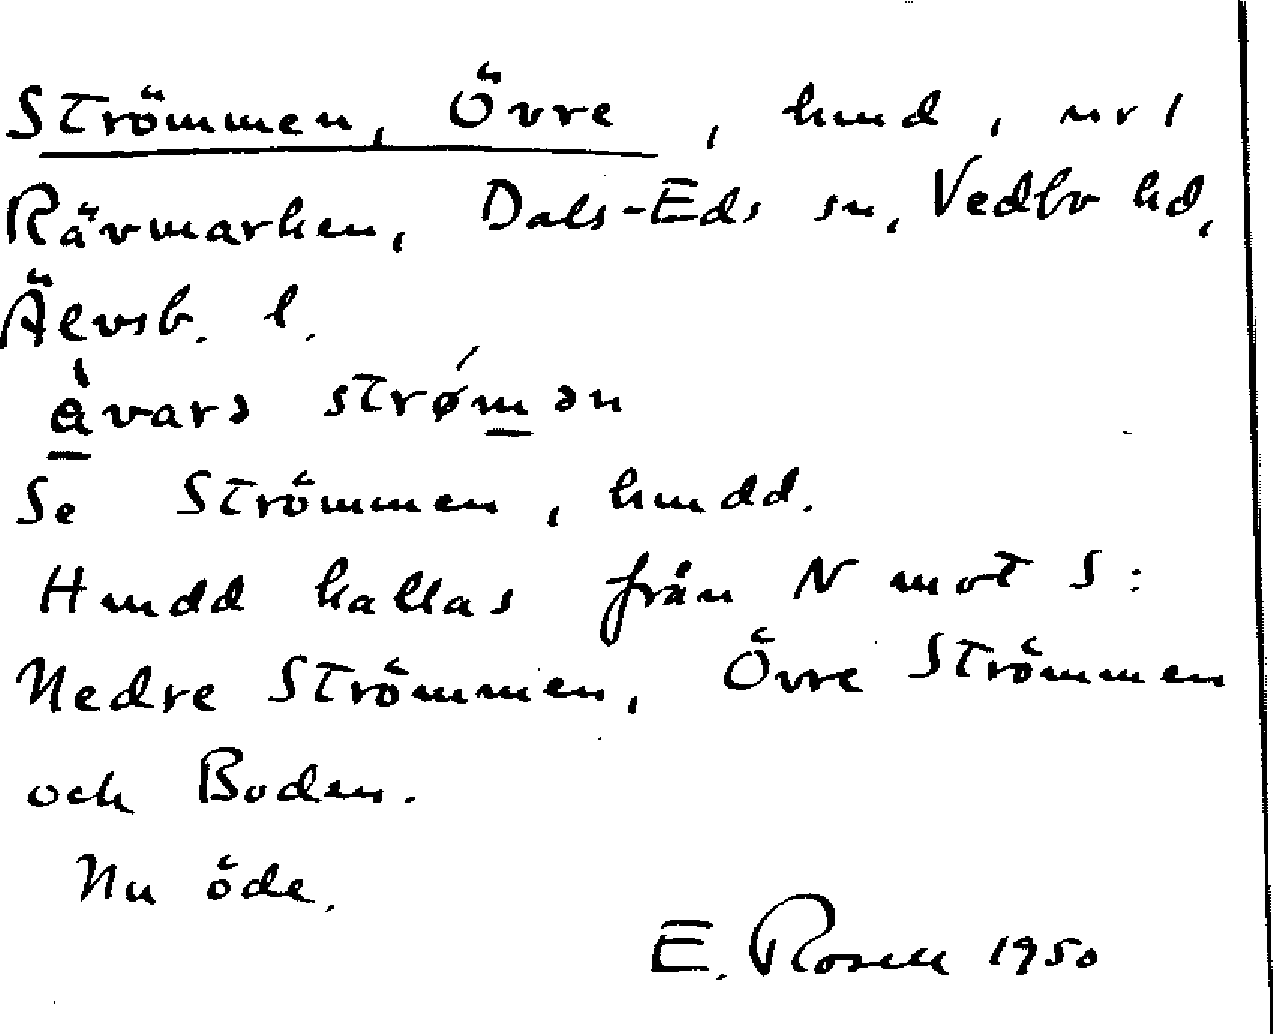 Strömmen, Övre, hmd, nr 1
Rävmarken, Dals-Eds sn, Vedbo hd,
Älvsb. l.
å̀varə strǿmən
Se Strömmen, hmdd.
Hmdd kallas från N mot S:
Nedre Strömmen, Övre Strömmen
och Boden.
Nu öde.
E. Rosell 1950